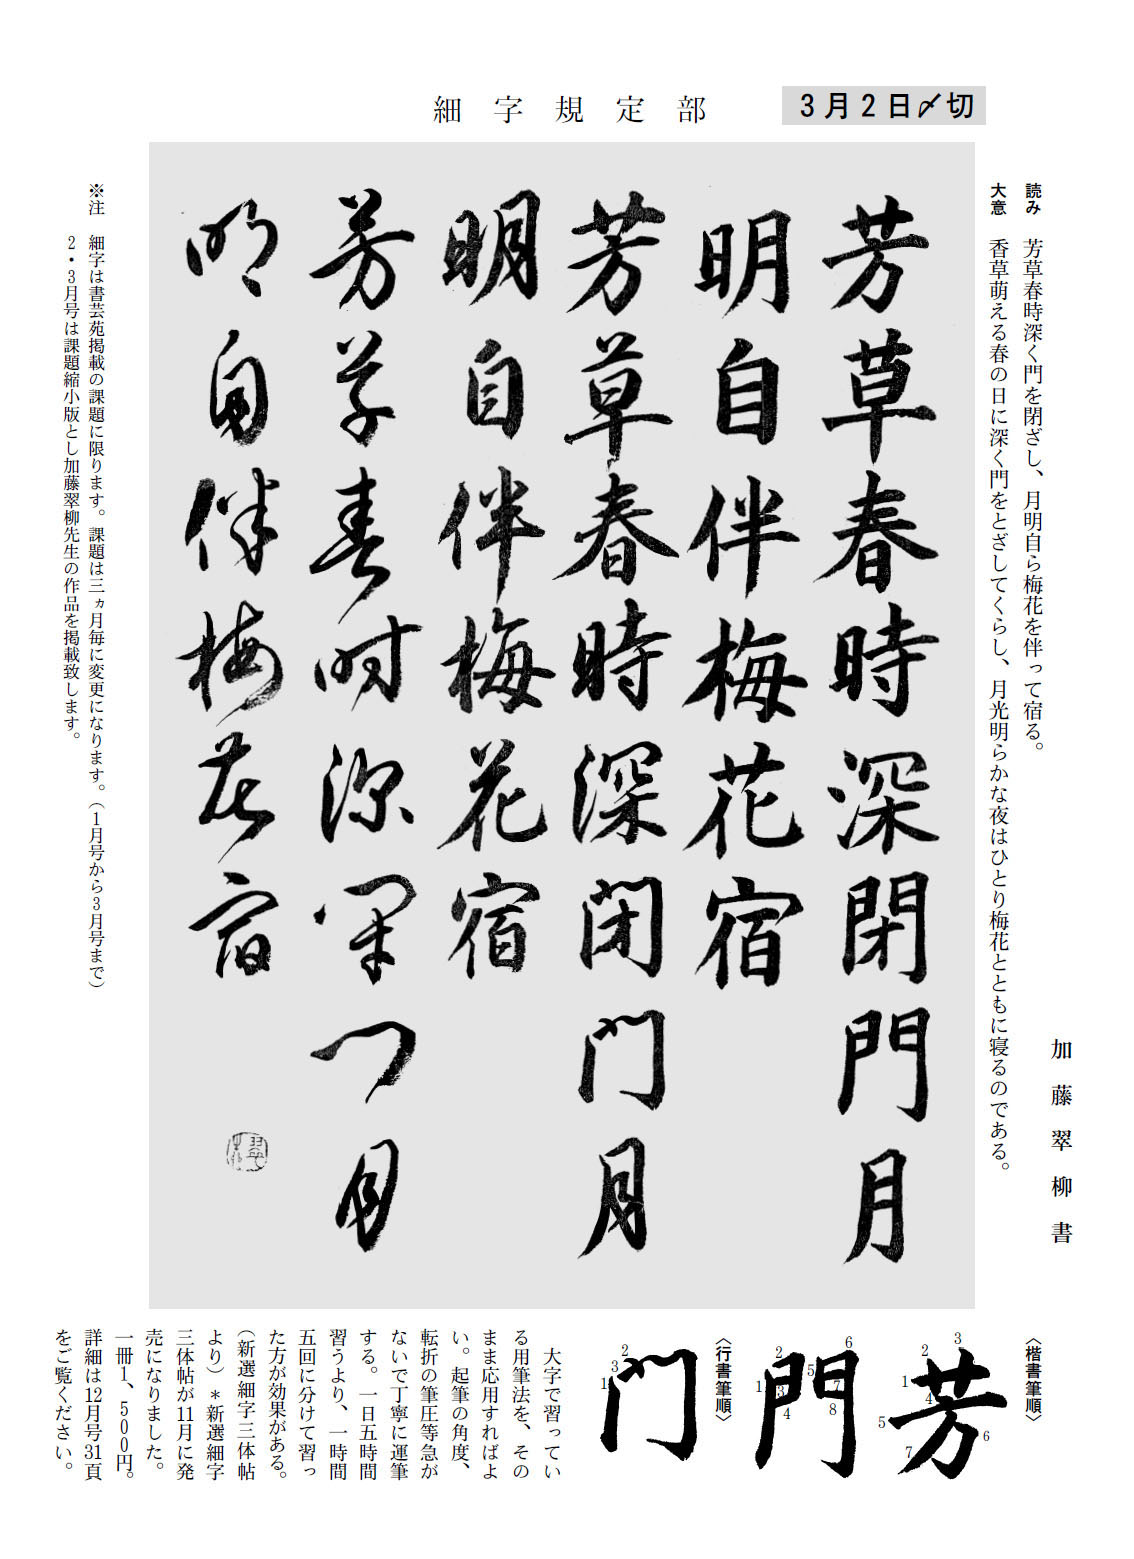 細字規定部
3月2日〆切
加藤翠柳書
読み 芳草春時深く門を閉ざし、月明自ら梅花を伴って宿る。
大意 香草萌える春の日に深く門をとざしてくらし、月光明らかな夜はひとり梅花とともに寝るのである。
芳草春時深閉門月
明自伴梅花宿
芳草春時深閉門月
明自伴梅花宿
芳草春時深閉門月
明自伴梅花宿
※注 細字は書芸苑掲載の課題に限ります。課題は三ヵ月毎に変更になります。(1月号から3月号まで)
2・3月号は課題縮小版とし加藤翠柳先生の作品を掲載致します。
〈楷書筆順〉
芳
1
2
3
4
5
6
7
門
1
2
3
4
5
6
7
8
〈行書筆順〉
门
1
2
3
大字で習ってい
る用筆法を、その
まま応用すればよ
い。起筆の角度、
転折の筆圧等急が
ないで丁寧に運筆
する。一日五時間
習うより、一時間
五回に分けて習っ
た方が効果がある。
(新選細字三体帖
より)＊新選細字
三体帖が11月に発
売になりました。
一冊1、500円。
詳細は12月号31頁
をご覧ください。